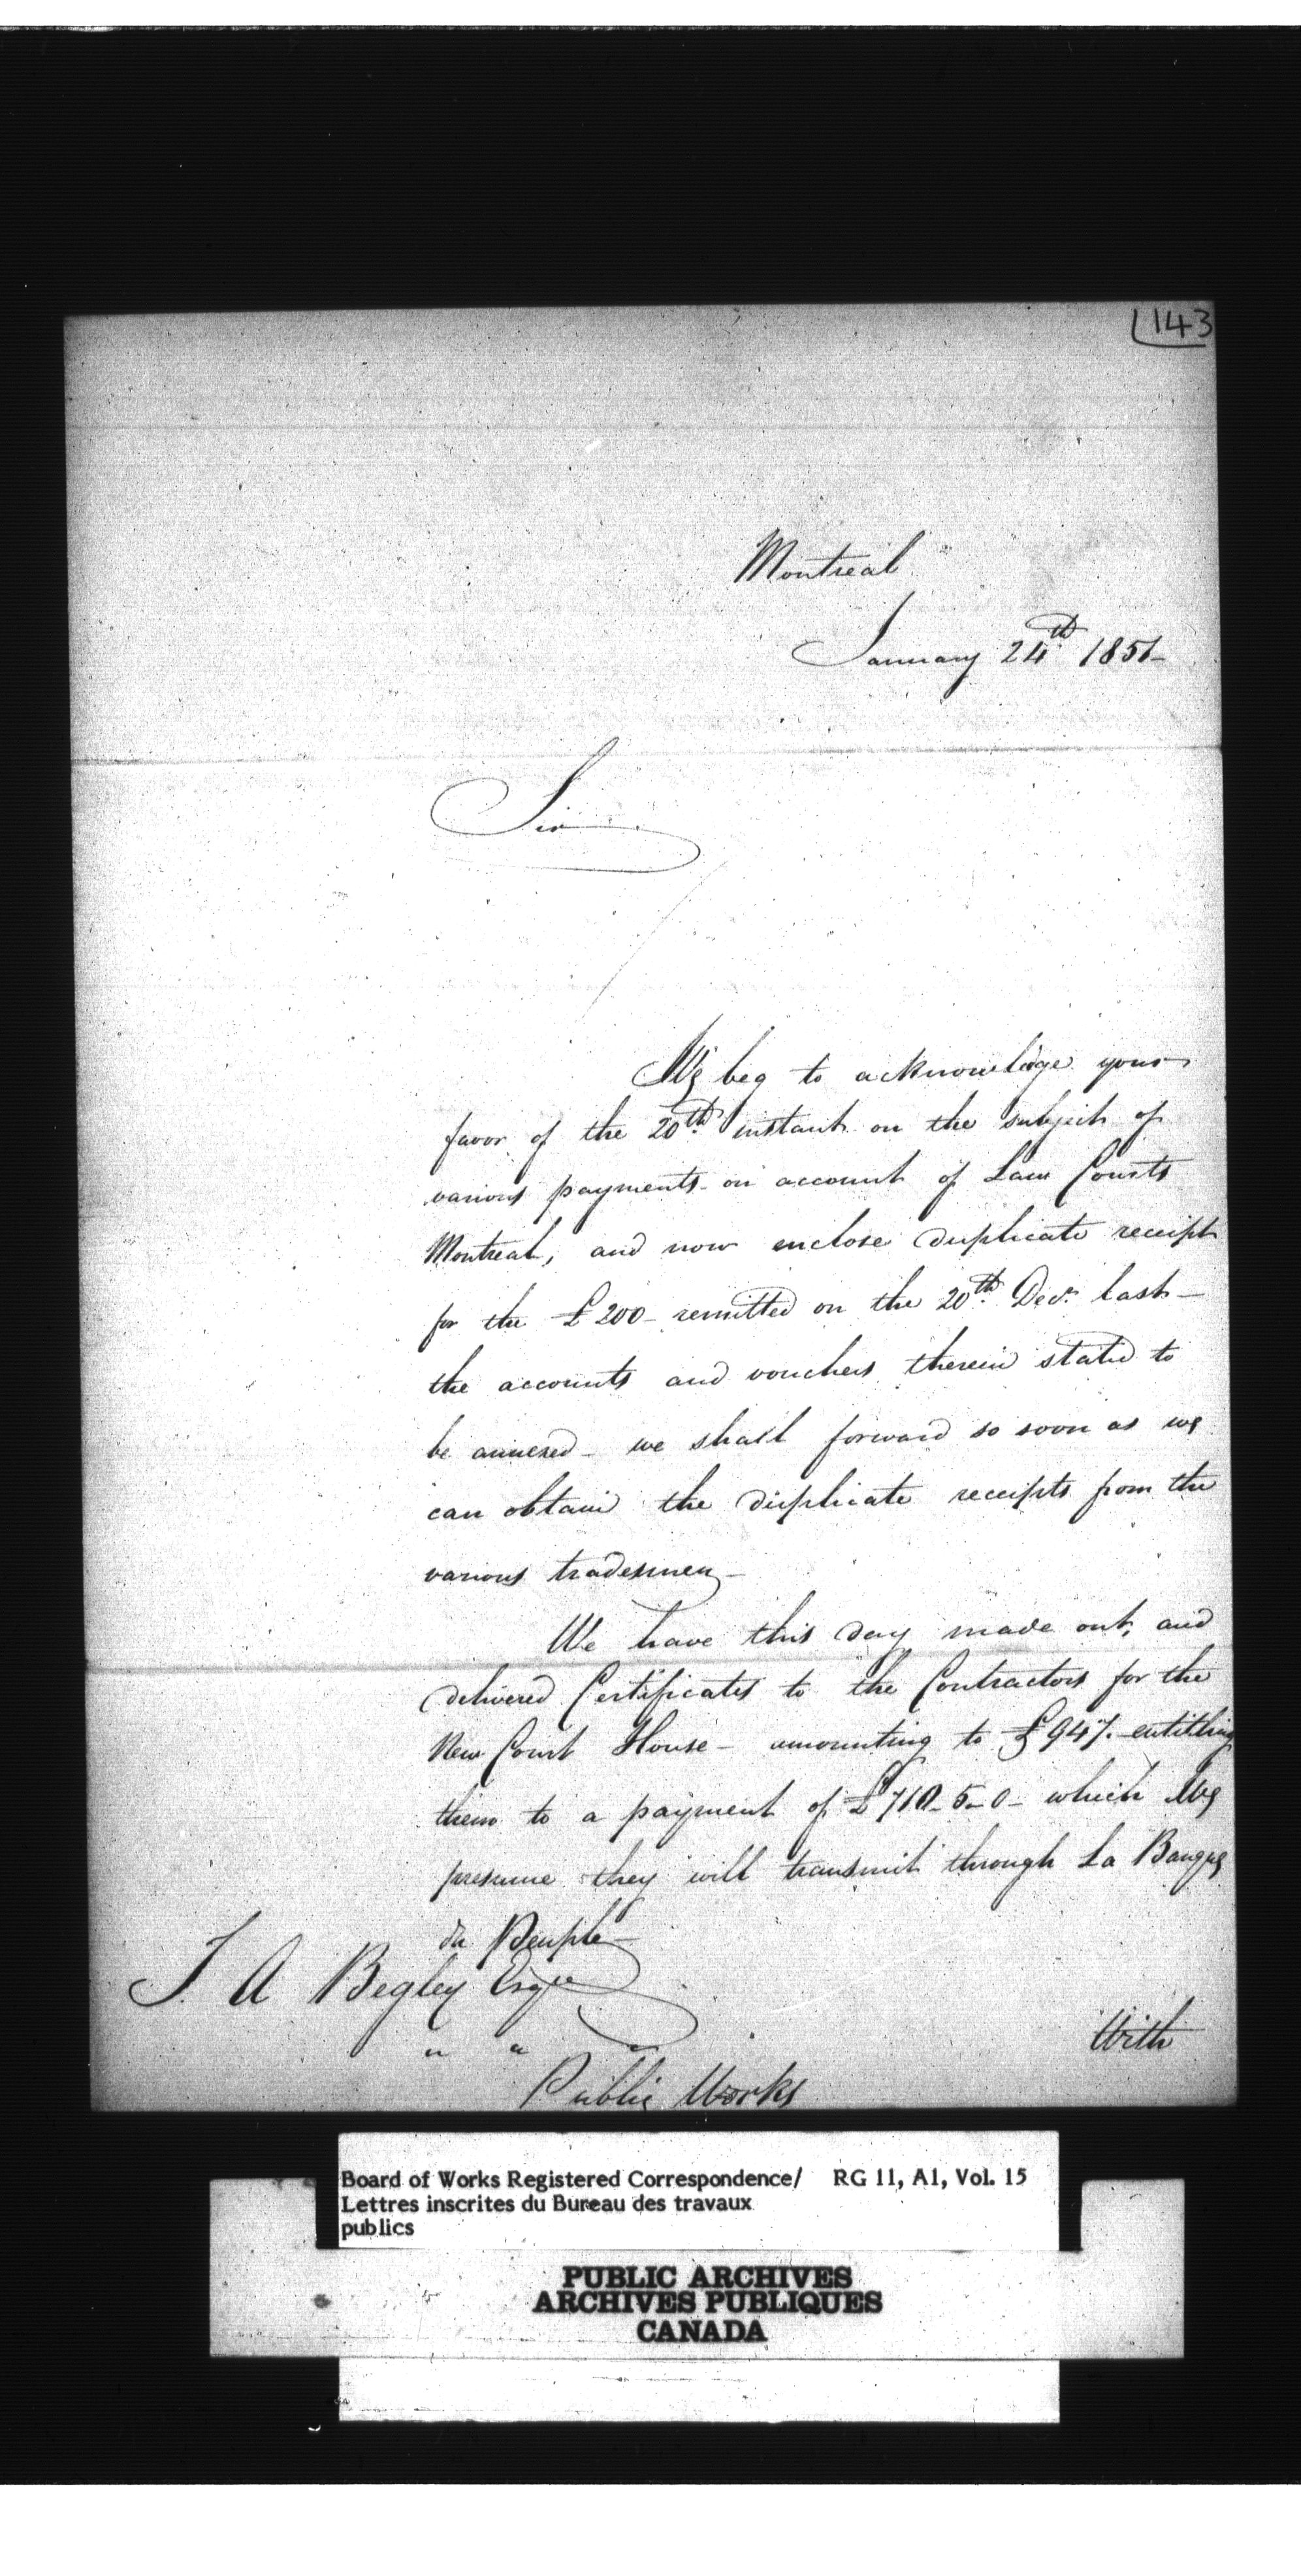 143
Montreal
January 24th 1851
Sir
We beg to acknowledge your
favor of the 20th instant on the subject of
various payments on account of Law Courts
Montreal, and now enclose duplicate receipt
for the £200 - remitted on the 20th Decr last -
the accounts and vouchers therein stated to
be annexed - we shall forward so soon as we
can obtain the duplicate receipts from the
various tradesmen -
We have this day made out, and
delivered Certificates to the Contractors for the
New Court House - amounting to £947. entitling
them to a payment of £710 - 5 - 0 - which We
presume they will transmit through La Banque
du Peuple -
T. A Begley Esqre
" " "
Public Works
With
Board of Works Registered Correspondence/ RG 11, A1, Vol. 15
Lettres inscrites du Bureau des travaux
publics
PUBLIC ARCHIVES
ARCHIVES PUBLIQUES
CANADA